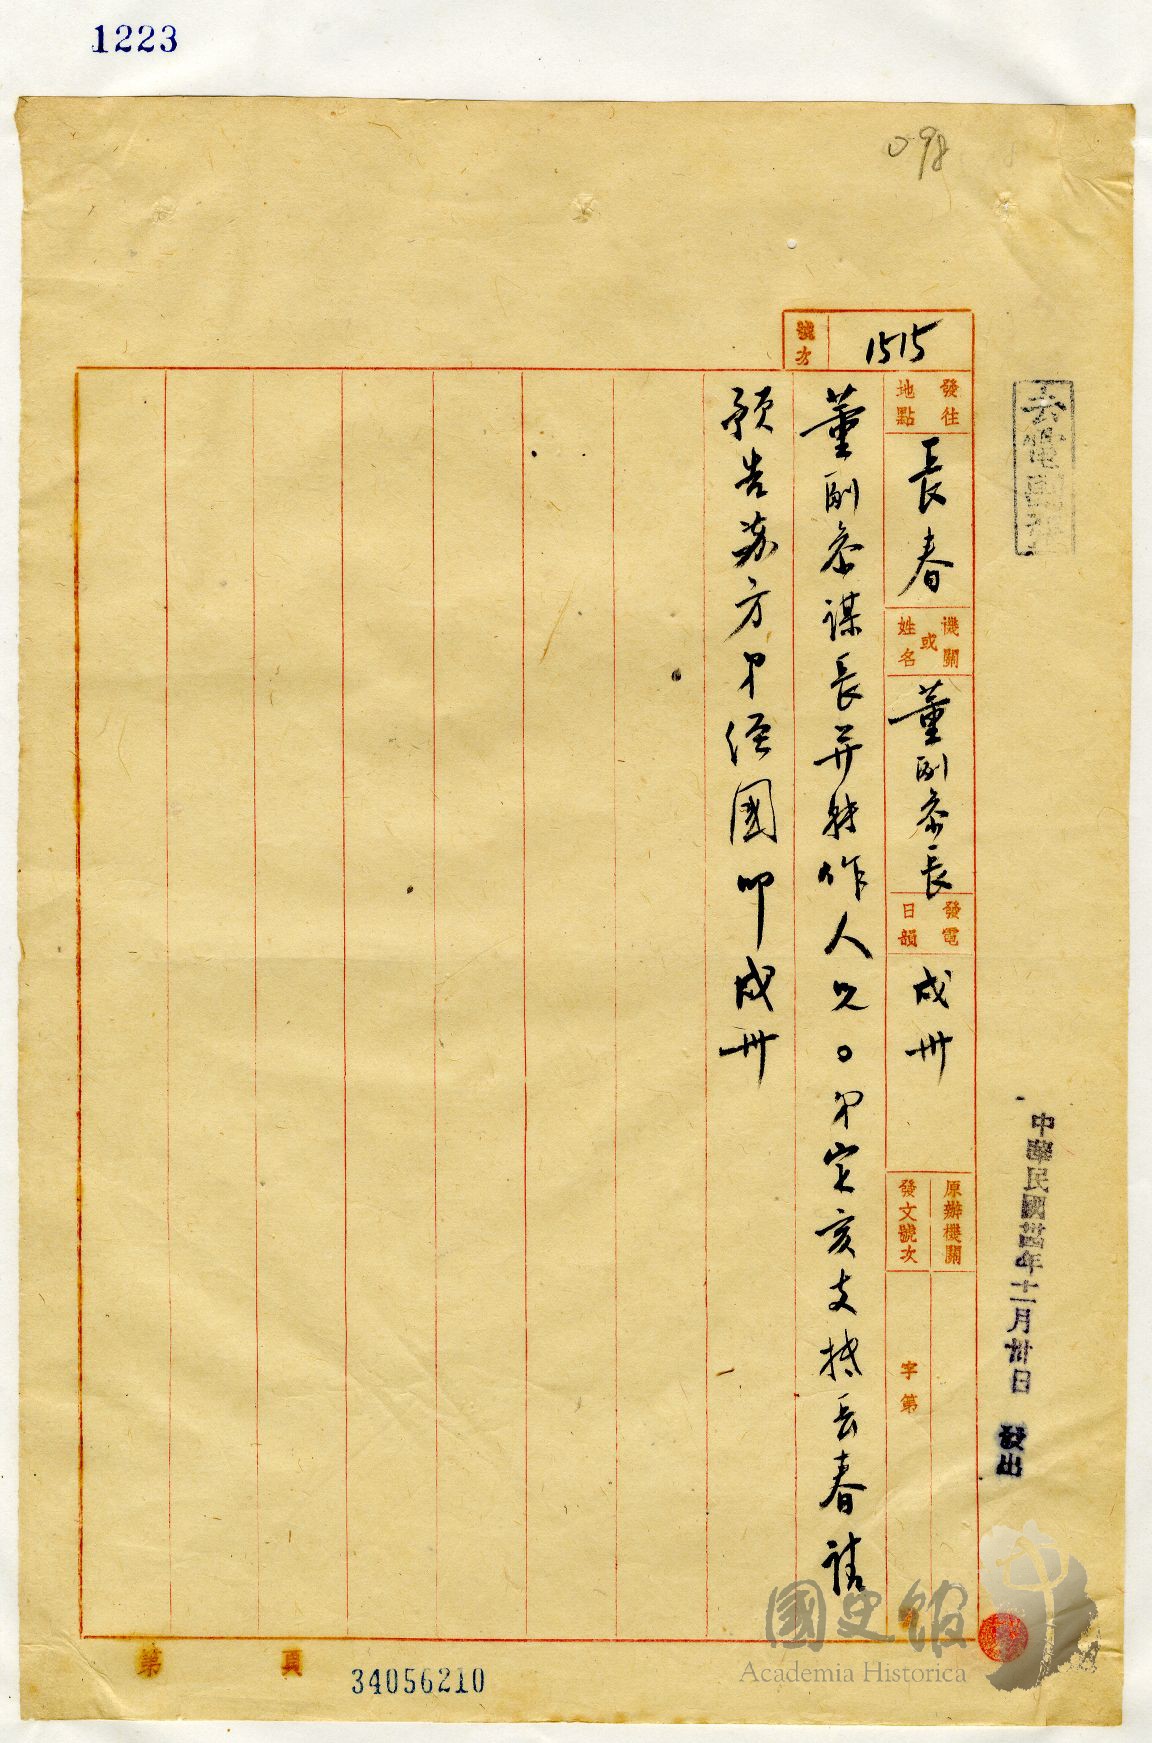 1223
098
去電國祥
號次
1515
發往地點
長春
機關或姓名
董副參長
發電日韻
戌卅
原辦機關
發文號次
字第
號
董副參謀長并转作人兄。弟定亥支抵長春請
預告苏方弟經國叩戌卅
中華民國卅四年十一月卅日 發出
第 頁
34056210
國史館
Academia Historica